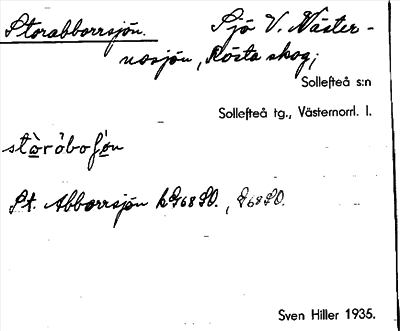 Storabborrsjön. Sjö V. Näster-
nosjön, Rösta skog;
Sollefteå s:n
Sollefteå tg., Västernorrl. l.
St. Abborrsjön
Sven Hiller 1935.